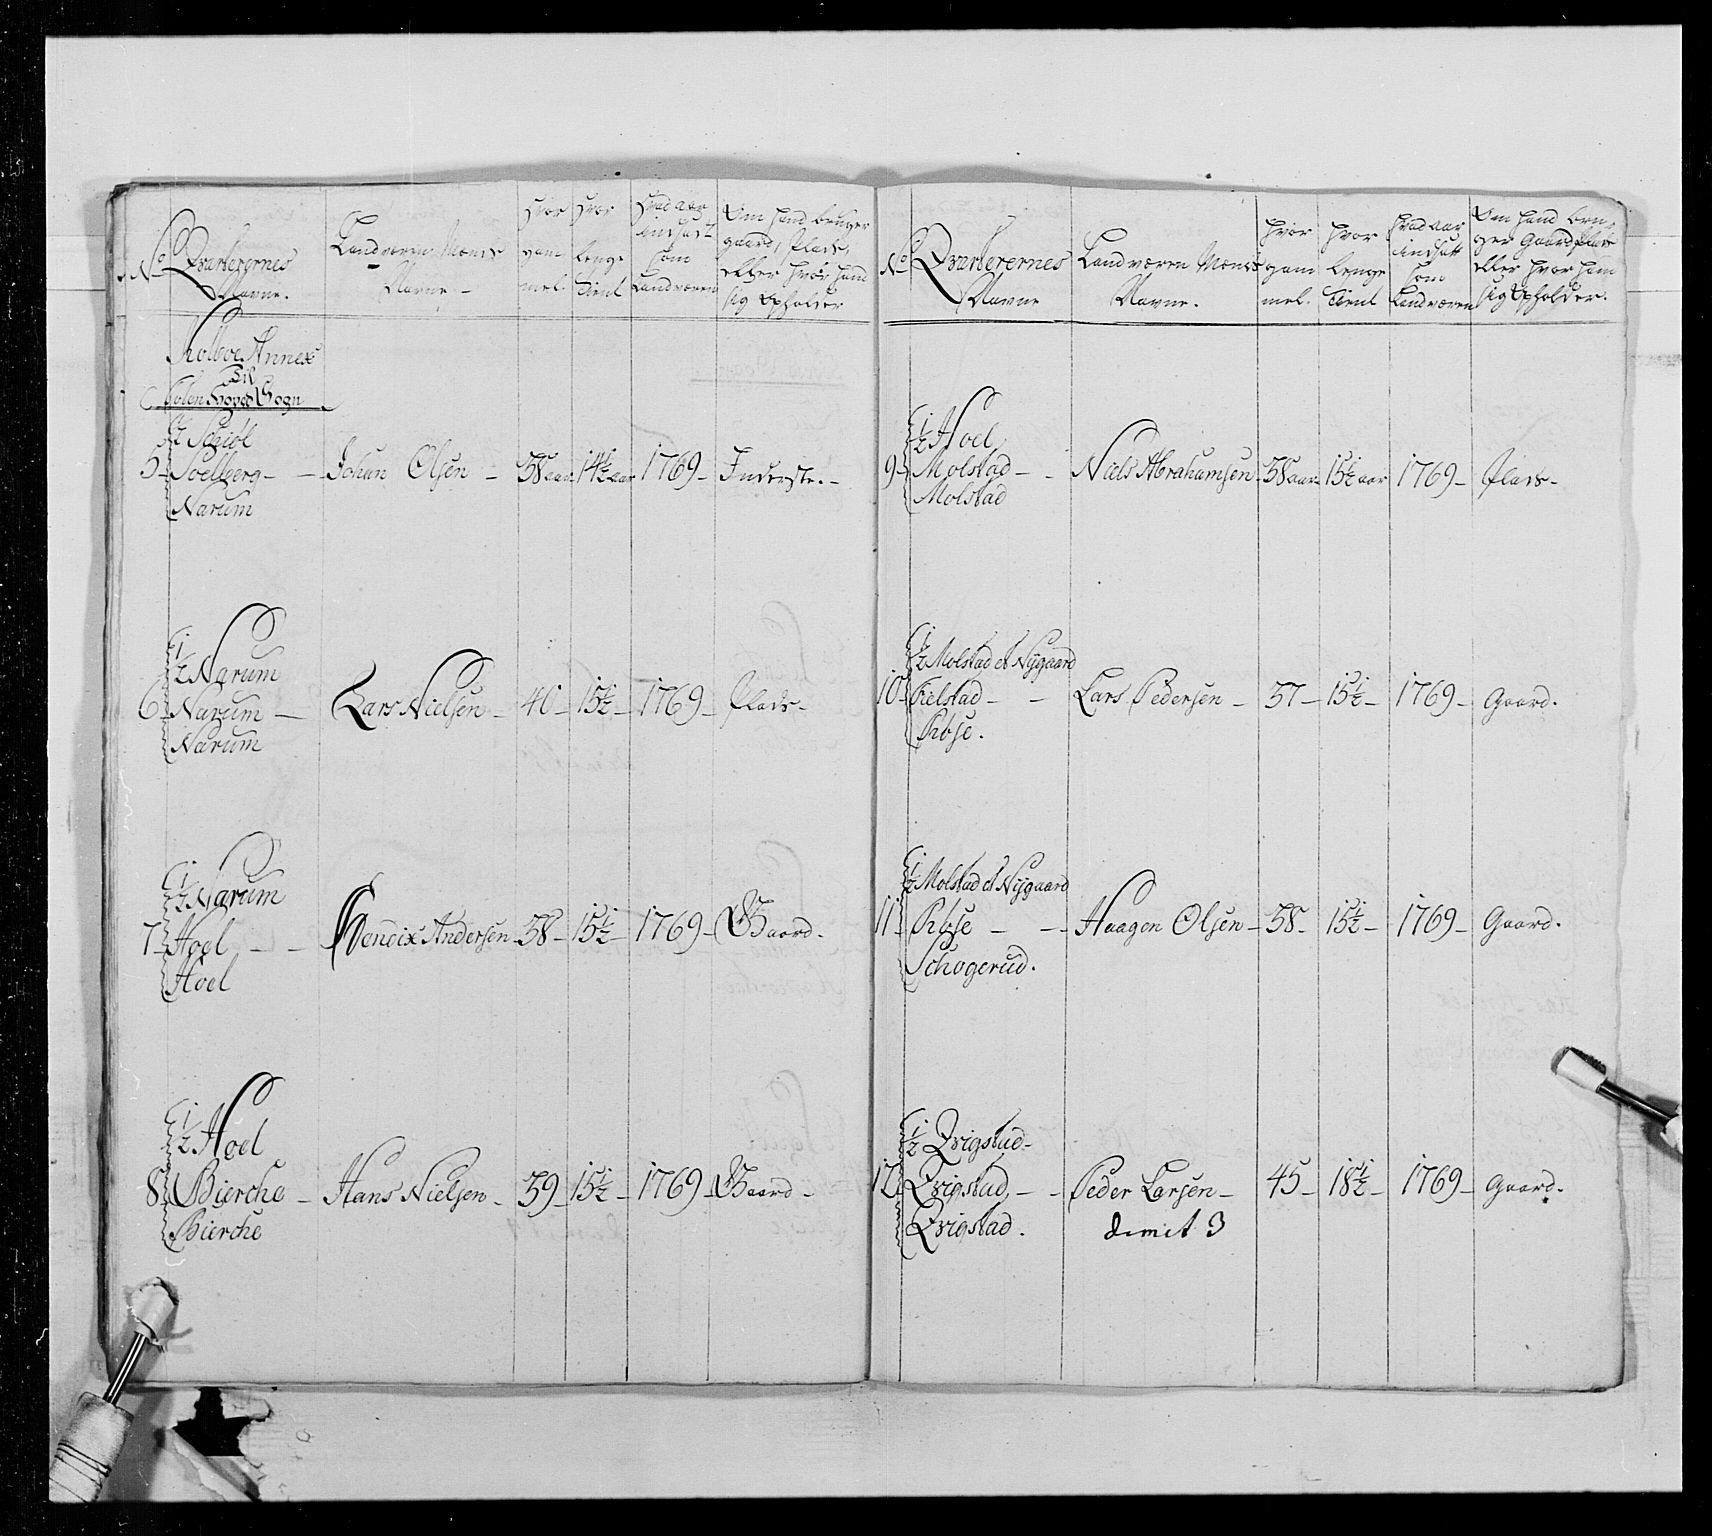 No
Qvarterernes
Navne.
Landværen Mands
Navne
Hvor
gam
mel.
Hvor
lenge
Tient
Hvad aar
indsat
som
Landværen
Om hand bruger
gaard, Plads,
eller hvor hand
sig Opholder
Kolboe Annex
Til
Sogn
5
1/2
Soelberg
Narum
Johan Olsen
38 aar
14 1/2 aar
1769
Inderste.
6
1/2 Narum
Narum
Narum
Lars Nielsen
40
15 1/2
1769
Plads.
7
1/2 Narum
Hoel
Hoel
Hendrix Andersen
38
15 1/2
1769
Gaard.
8
1/2 Hoel
Bierche
Bierche
Hans Nielsen
39
15 1/2
1769
Gaard
No
Qvarterernes
Navne
Landværen Mands
Navne.
Hvor
gam
mel.
Hvor
lenge
Tient
Hvad aar
indsatt
som
Landværen
Om hand bru-
ger Gaard Plads
eller hvor ham
sig Opholder.
9
1/2 Hoel
Molstad
Molstad
Niels Abrahamsen
38 aar
15 1/2 aar
1769
Plads
10
1/2 Molstad et Nÿgaard
Fielstad
Lars Pedersen
37
15 1/2
1769
Gaard.
11
1/2 Molstad et Nÿgaard
Schogerud.
Haagen Olsen
38
15 1/2
1769
Gaard.
12
1/2 Qvigstad
Qvigstad
Qvigstad.
Peder Larsen
dimit 3
45
18 1/2
1769
Gaard.